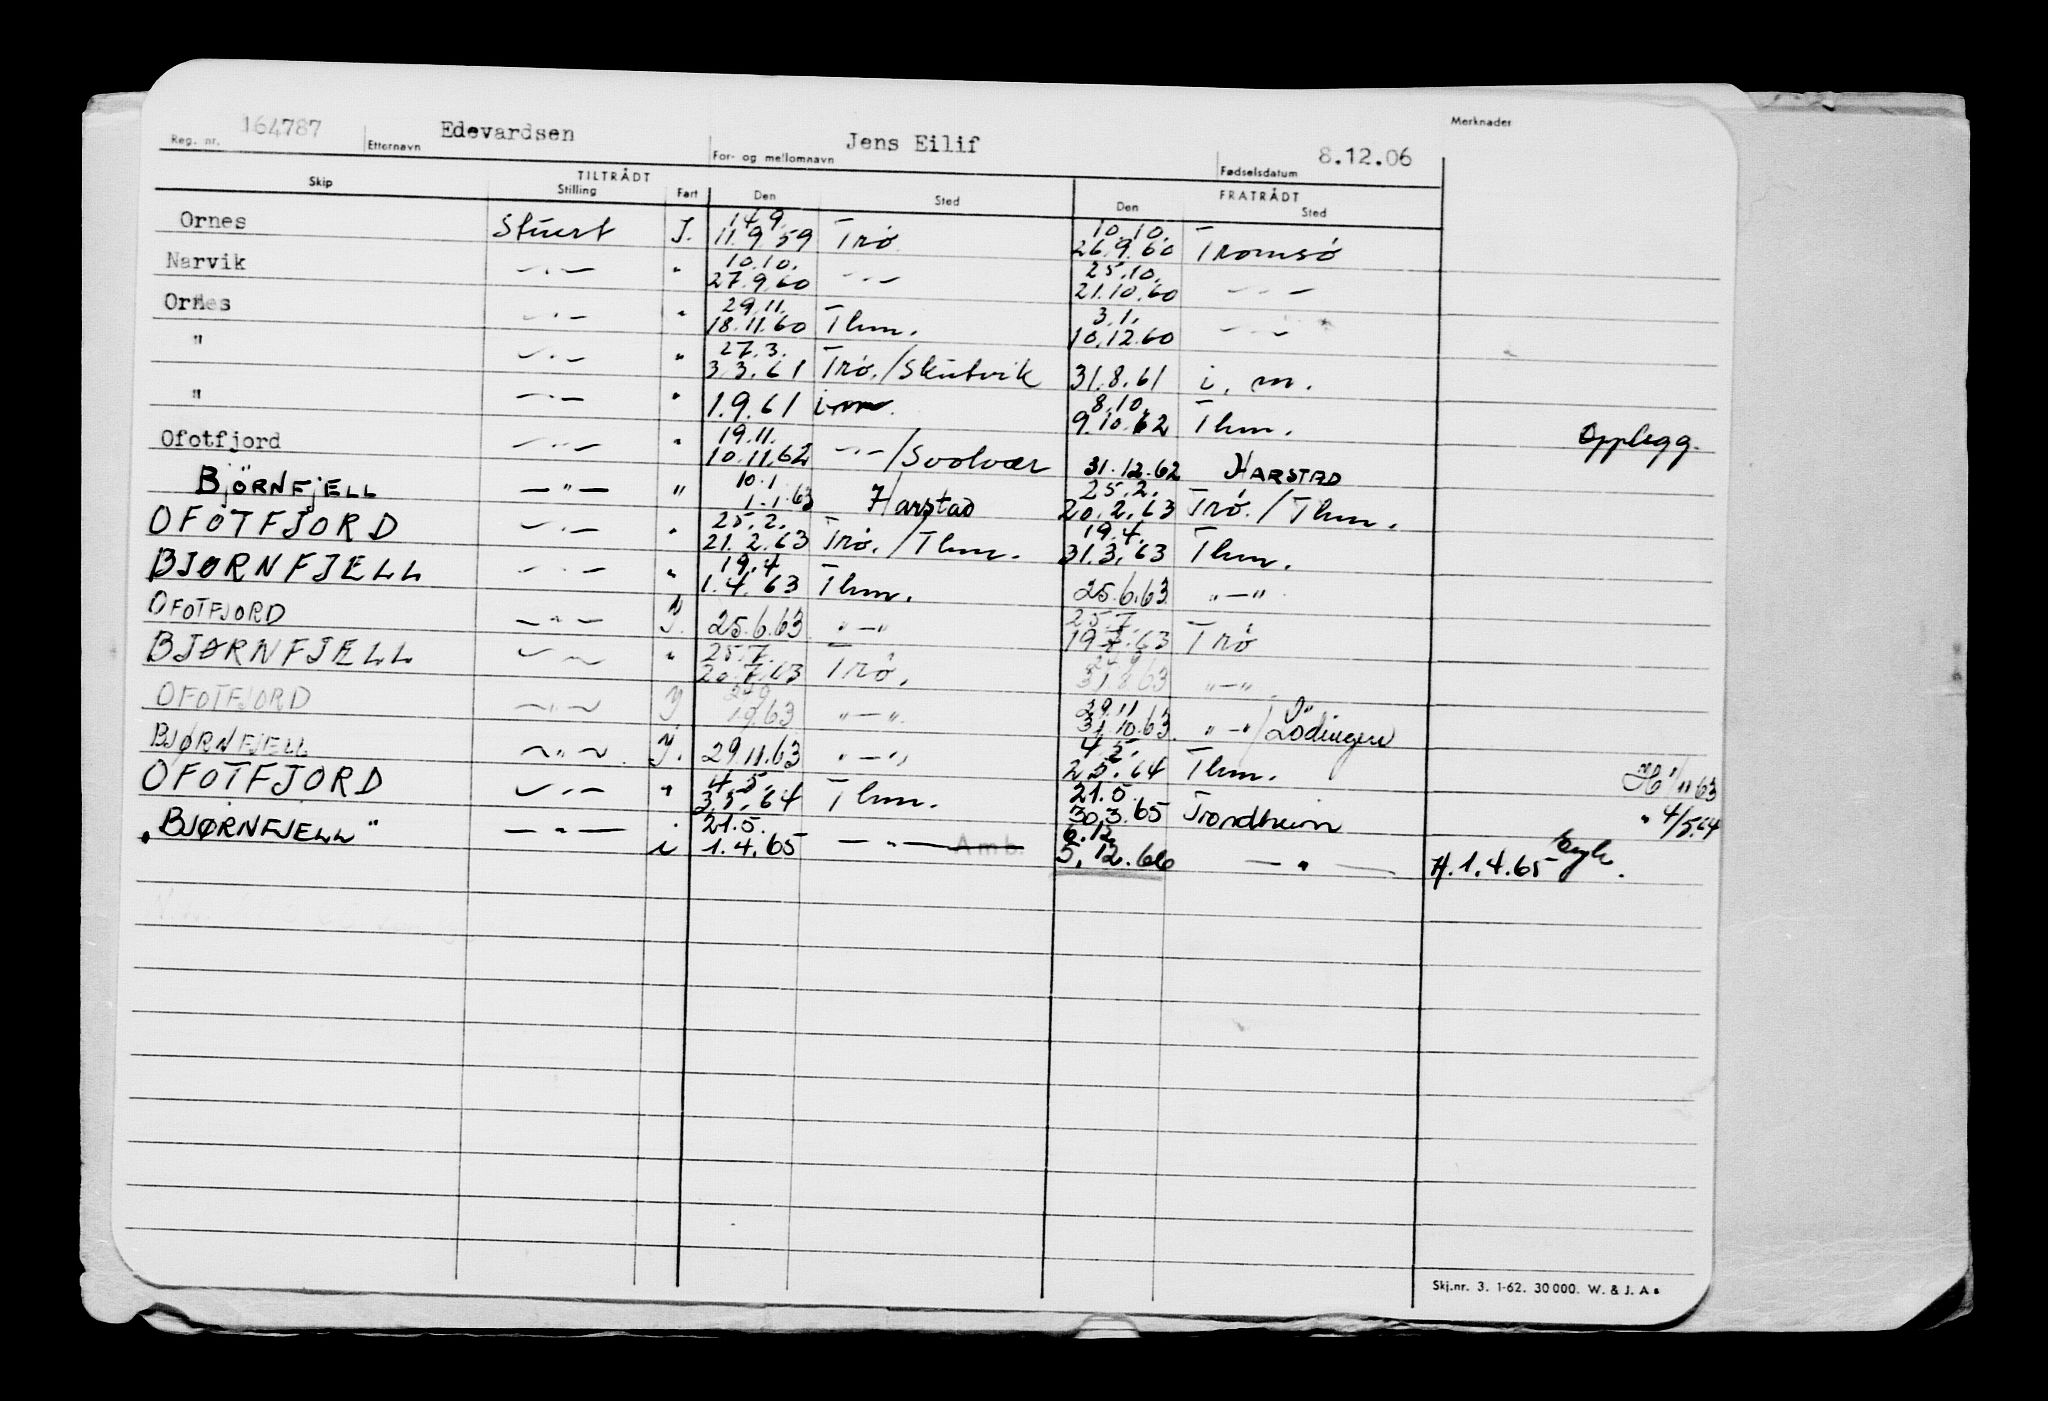 Reg. nr. 164787 Etternavn Edevardsen For- og mellomnavn Jens Eilif Fødselsdatum 8.12.06 Merknader
TILTRÅDT FRATRÅDT
Skip Stilling Fart Den Sted Den Sted
14.9. 10.10.
Ornes Stuert J. 11.9.59 Trø 26.9.60 Tromsø
10.10. 25.10.
Narvik —"— " 27.9.60 —"— 21.10.60 —"—
29.11. 3.1.
Ornes —"— " 18.11.60 Thm. 10.12.60 —"—
27.3.
" —"— " 3.3.61 Trø./Skutvik 31.8.61 i. m.
8.10.
" —"— " 1.9.61 i m. 9.10.62 Thm. Opplegg.
19.11.
Ofotfjord —"— " 10.11.62 —"—/Svolvær 31.12.62 HARSTAD
10.1 25.2.
BJÖRNFJELL —"— " 1.1.63 Harstad 20.2.63 Trø./Thm.
25.2. 19.4.
OFOTFJORD —"— " 21.2.63 Trø./Thm. 31.3.63 Thm.
19.4
BJØRNFJELL —"— " 1.4.63 Thm. 25.6.63 "—"
25.7.
OFOTFJORD —"— J. 25.6.63 "—" 19.7.63 Trø
25.7.
BJØRNFJELL —"— " 20.7.63 Trø. 31.8.63 "—"
29.11
OFOTFJORD —"— J 1.9.63 "—" 31.10.63 "—"/Lödingen
4.5.
BJØRNFJELL —"— J. 29.11.63 "—" 2.5.64 Thm. 1/11 63
4.5. 21.5.
OFOTFJORD —"— " 3.5.64 Thm. 30.3.65 Trondheim " 4/5.64
21.5. 6.12.
"BJØRNFJELL" —"— i 1.4.65 —"— Amb. 5.12.66 —"— H.1.4.65
Skj.nr. 3. 1-62. 30000. W. & J. A s